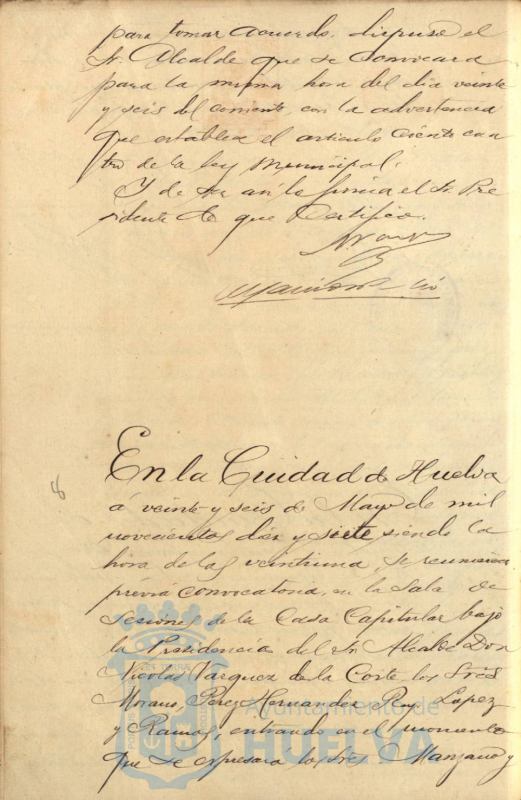 para tomar acuerdo, dispuso el
Sr. Alcalde que se convocara
para la misma hora del dia veinte
y seis del corriente, con la advertencia
que establece el articulo ciento cua
tro de la ley Municipal.
Y de ser asi la firma el Sr. Pre
sidente de que Certifico.
En la Ciudad de Huelva
8
á veinte y seis de Mayo de mil
novecientos diez y siete siendo la
hora de las veintiuna, se reunieron
prévia convocatoria, en la Sala de
Sesiones de la Casa Capitular bajo
la Presidencia del Sr. Alcalde Don
Nicolás Vázquez de la Corte, los Sres
Morano, Perez Hernandez, López
y Ramos, entrando en el momento
que se espresará los Sres. Manzano y
Ayuntamiento de
HUELVA